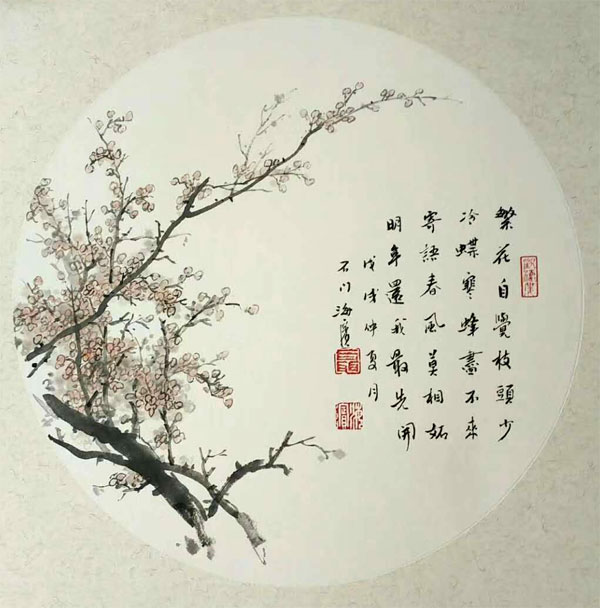 繁花自覺枝頭少
冷蝶寒蜂盡不來
寄語春風莫相妬
明年還我最先開
戊戌仲夏月
石川海